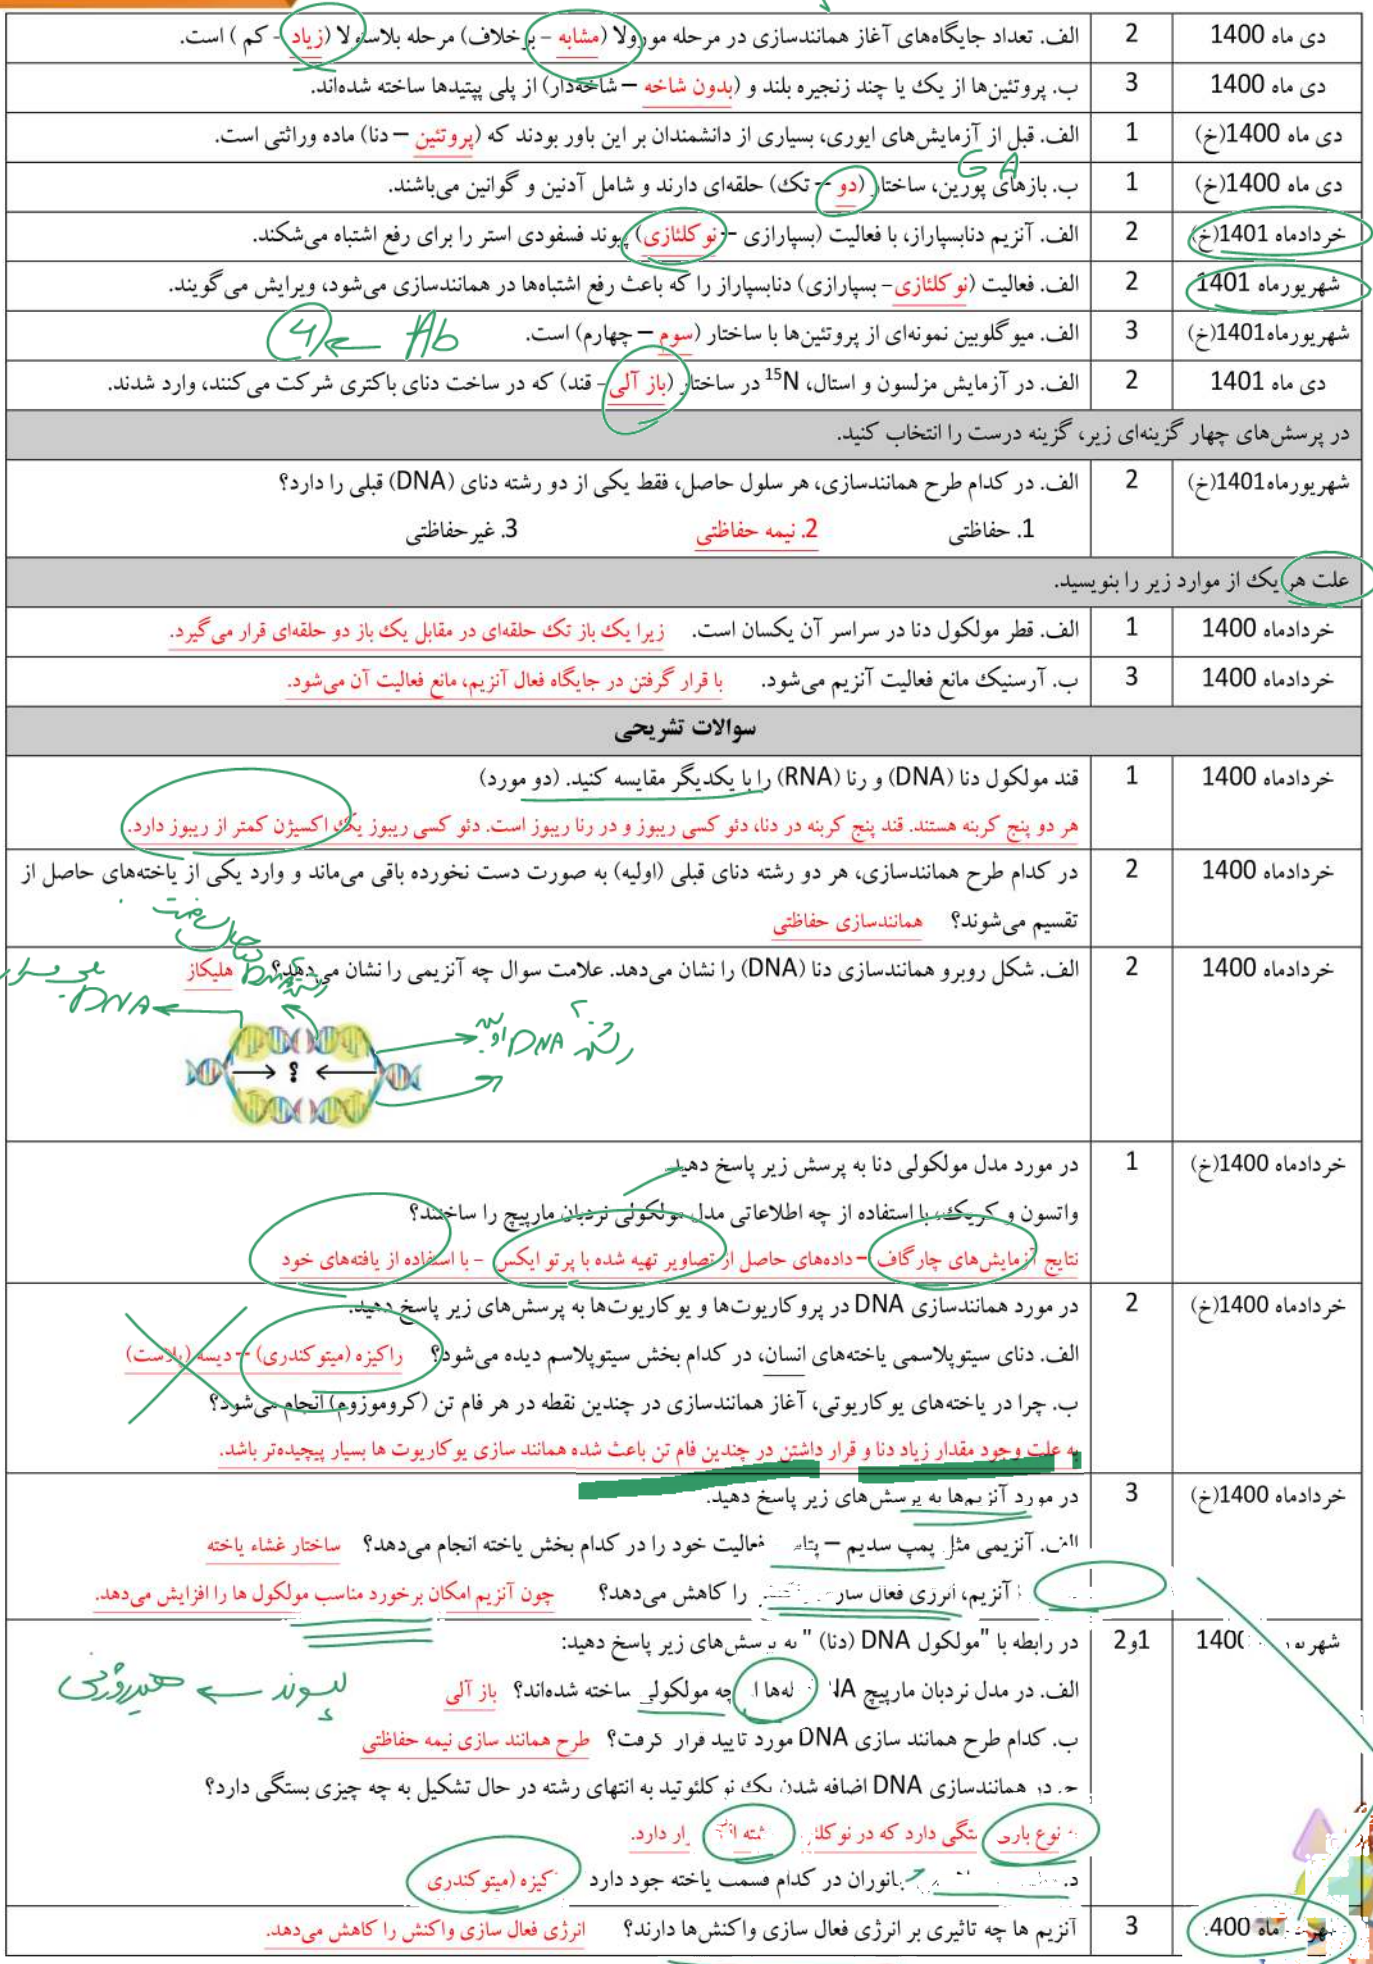 دی ماه 1400 2 الف. تعداد جایگاه‌های آغاز همانندسازی در مرحله مورولا (مشابه – برخلاف) مرحله بلاستولا (زیاد - کم ) است.
دی ماه 1400 3 ب. پروتئین‌ها از یک یا چند زنجیره بلند و (بدون شاخه – شاخه‌دار) از پلی پپتیدها ساخته شده‌اند.
دی ماه 1400(خ) 1 الف. قبل از آزمایش‌های ایوری، بسیاری از دانشمندان بر این باور بودند که (پروتئین – دنا) ماده وراثتی است.
G A
دی ماه 1400(خ) 1 ب. بازهای پورین، ساختار (دو – تک) حلقه‌ای دارند و شامل آدنین و گوانین می‌باشند.
خردادماه 1401(خ) 2 الف. آنزیم دنابسپاراز، با فعالیت (بسپارازی – نوکلئازی) پیوند فسفودی استر را برای رفع اشتباه می‌شکند.
شهریورماه 1401 2 الف. فعالیت (نوکلئازی- بسپارازی) دنابسپاراز را که باعث رفع اشتباه‌ها در همانندسازی می‌شود، ویرایش می‌گویند.
شهریورماه1401(خ) 3 الف. میوگلوبین نمونه‌ای از پروتئین‌ها با ساختار (سوم – چهارم) است. Hb ← 4
دی ماه 1401 2 الف. در آزمایش مزلسون و استال، 15N در ساختار (باز آلی- قند) که در ساخت دنای باکتری شرکت می‌کنند، وارد شدند.
در پرسش‌های چهار گزینه‌ای زیر، گزینه درست را انتخاب کنید.
شهریورماه1401(خ) 2 الف. در کدام طرح همانندسازی، هر سلول حاصل، فقط یکی از دو رشته دنای (DNA) قبلی را دارد؟
1. حفاظتی 2. نیمه حفاظتی 3. غیرحفاظتی
علت هر یک از موارد زیر را بنویسید.
خردادماه 1400 1 الف. قطر مولکول دنا در سراسر آن یکسان است. زیرا یک باز تک حلقه‌ای در مقابل یک باز دو حلقه‌ای قرار می‌گیرد.
خردادماه 1400 3 ب. آرسنیک مانع فعالیت آنزیم می‌شود. با قرار گرفتن در جایگاه فعال آنزیم، مانع فعالیت آن می‌شود.
سوالات تشریحی
خردادماه 1400 1 قند مولکول دنا (DNA) و رنا (RNA) را با یکدیگر مقایسه کنید. (دو مورد)
هر دو پنج کربنه هستند. قند پنج کربنه در دنا، دئو کسی ریبوز و در رنا ریبوز است. دئو کسی ریبوز یک اکسیژن کمتر از ریبوز دارد.
خردادماه 1400 2 در کدام طرح همانندسازی، هر دو رشته دنای قبلی (اولیه) به صورت دست نخورده باقی می‌ماند و وارد یکی از یاخته‌های حاصل از
تقسیم می‌شوند؟ همانندسازی حفاظتی
خردادماه 1400 2 الف. شکل روبرو همانندسازی دنا (DNA) را نشان می‌دهد. علامت سوال چه آنزیمی را نشان می‌دهد؟ هلیکاز
DNA
رشته DNA اولیه
؟
خردادماه 1400(خ) 1 در مورد مدل مولکولی دنا به پرسش زیر پاسخ دهید.
واتسون و کریک، با استفاده از چه اطلاعاتی مدل مولکولی نردبان مارپیچ را ساختند؟
نتایج آزمایش‌های چارگاف – داده‌های حاصل از تصاویر تهیه شده با پرتو ایکس - با استفاده از یافته‌های خود
خردادماه 1400(خ) 2 در مورد همانندسازی DNA در پروکاریوت‌ها و یوکاریوت‌ها به پرسش‌های زیر پاسخ دهید.
الف. دنای سیتوپلاسمی یاخته‌های انسان، در کدام بخش سیتوپلاسم دیده می‌شود؟ راکیزه (میتوکندری) – دیسه (پلاست)
ب. چرا در یاخته‌های یوکاریوتی، آغاز همانندسازی در چندین نقطه در هر فام تن (کروموزوم) انجام می‌شود؟
به علت وجود مقدار زیاد دنا و قرار داشتن در چندین فام تن باعث شده همانند سازی یوکاریوت ها بسیار پیچیده‌تر باشد.
خردادماه 1400(خ) 3 در مورد آنزیم‌ها به پرسش‌های زیر پاسخ دهید.
الف. آنزیمی مثل پمپ سدیم – فعالیت خود را در کدام بخش یاخته انجام می‌دهد؟ ساختار غشاء یاخته
آنزیم، انرژی فعال را کاهش می‌دهد؟ چون آنزیم امکان برخورد مناسب مولکول ها را افزایش می‌دهد.
1و2 در رابطه با "مولکول DNA (دنا) " به پرسش‌های زیر پاسخ دهید:
الف. در مدل نردبان مارپیچ چه مولکولی ساخته شده‌اند؟ باز آلی پیوند ← هیدروژنی
ب. کدام طرح همانند سازی DNA مورد تایید قرار گرفت؟ طرح همانند سازی نیمه حفاظتی
در همانندسازی DNA اضافه شدن یک نوکلئوتید به انتهای رشته در حال تشکیل به چه چیزی بستگی دارد؟
نوع بازی دارد که در دارد.
د. جانوران در کدام قسمت یاخته دارد (میتوکندری
3 آنزیم ها چه تاثیری بر انرژی فعال سازی واکنش‌ها دارند؟ انرژی فعال سازی واکنش را کاهش می‌دهد.